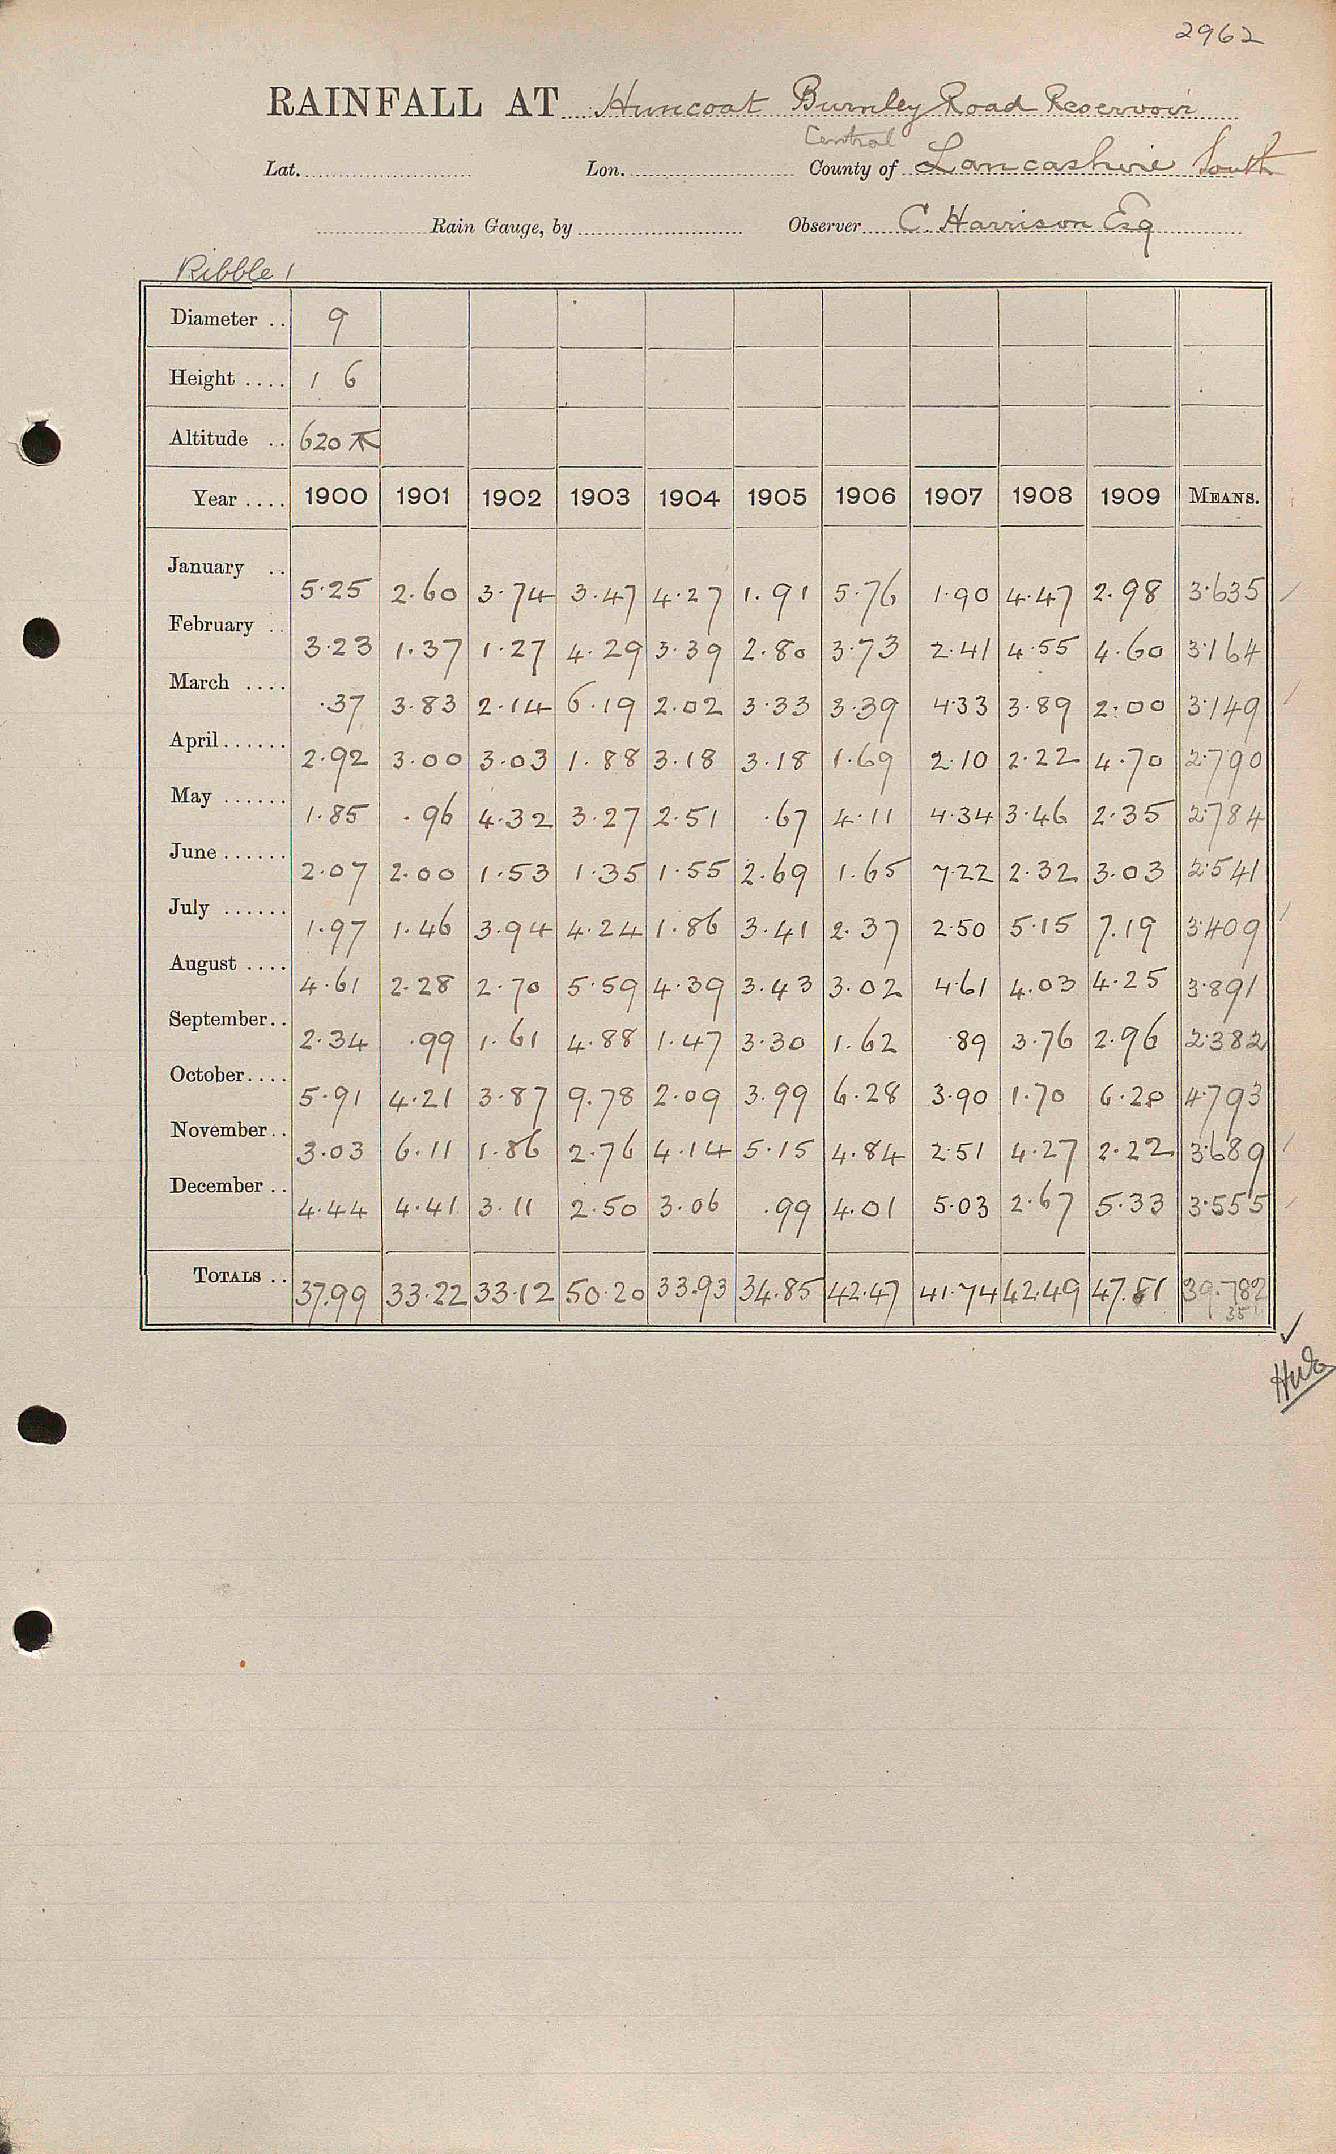 2962
RAINFALL AT Huncoat Burnley Road Reservoir
Central
Lat. Lon. County of Lancashire South
Rain Gauge, by Observer C. Harrison Esq
Ribble 1
Diameter .. 9
Height .... 1 6
Altitude .. 620
Year .... 1900 1901 1902 1903 1904 1905 1906 1907 1908 1909 MEANS.
January .. 5.25 2.60 3.74 3.47 4.27 1.91 5.76 1.90 4.47 2.98 3.635
February .. 3.23 1.37 1.27 4.29 3.39 2.80 3.73 2.41 4.55 4.60 3.164
March .... .37 3.83 2.14 6.19 2.02 3.33 3.39 4.33 3.89 2.00 3.149
April ...... 2.92 3.00 3.03 1.88 3.18 3.18 1.69 2.10 2.22 4.70 2.790
May ...... 1.85 .96 4.32 3.27 2.51 .67 4.11 4.34 3.46 2.35 2.784
June ...... 2.07 2.00 1.53 1.35 1.55 2.69 1.65 7.22 2.32 3.03 2.541
July ...... 1.97 1.46 3.94 4.24 1.86 3.41 2.37 2.50 5.15 7.19 3.409
August .... 4.61 2.28 2.70 5.59 4.39 3.43 3.02 4.61 4.03 4.25 3.891
September .. 2.34 .99 1.61 4.88 1.47 3.30 1.62 .89 3.76 2.96 2.382
October .... 5.91 4.21 3.87 9.78 2.09 3.99 6.28 3.90 1.70 6.20 4.793
November .. 3.03 6.11 1.86 2.76 4.14 5.15 4.84 2.51 4.27 2.22 3.689
December .. 4.44 4.41 3.11 2.50 3.06 .99 4.01 5.03 2.67 5.33 3.555
TOTALS .. 37.99 33.22 33.12 50.20 33.93 34.85 42.47 41.74 42.49 47.81 39.782
35